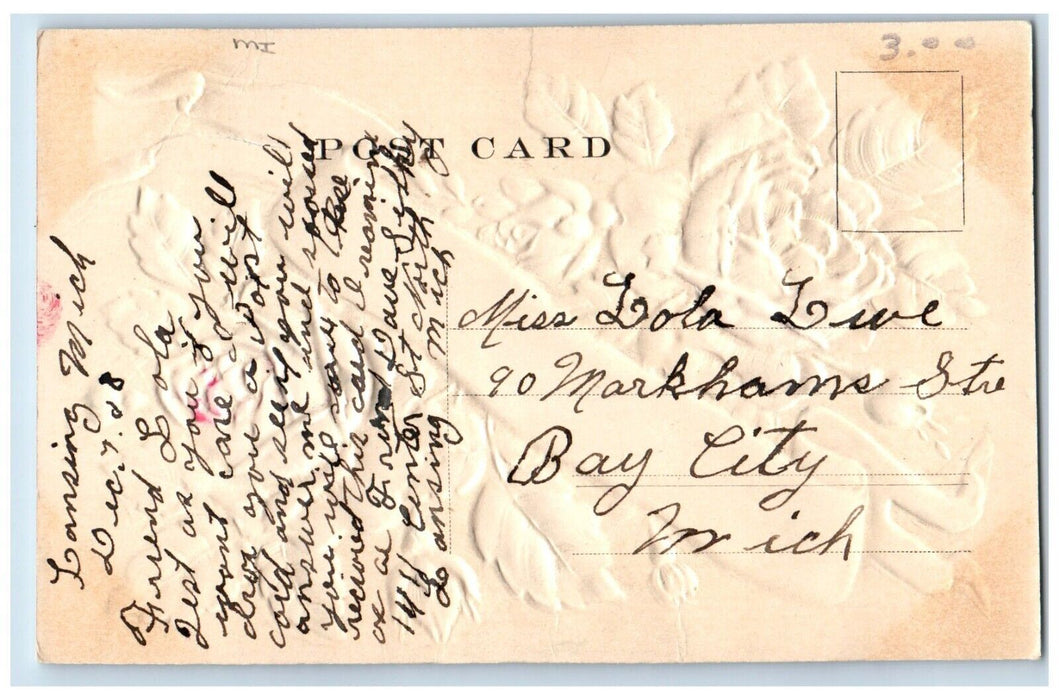 3.00
POST CARD
Lansing Mich
Dec. 7. 08
Friend Lola
Test as you if you
wont care I will
drop you a Post
card and see if you will
answer me and
you will sawe to
recieved this card I
as a Frind Dave
144 Center St North
Lansing Mich
Miss Lola Liwe
90 Markhams Stre
Bay City
Mich